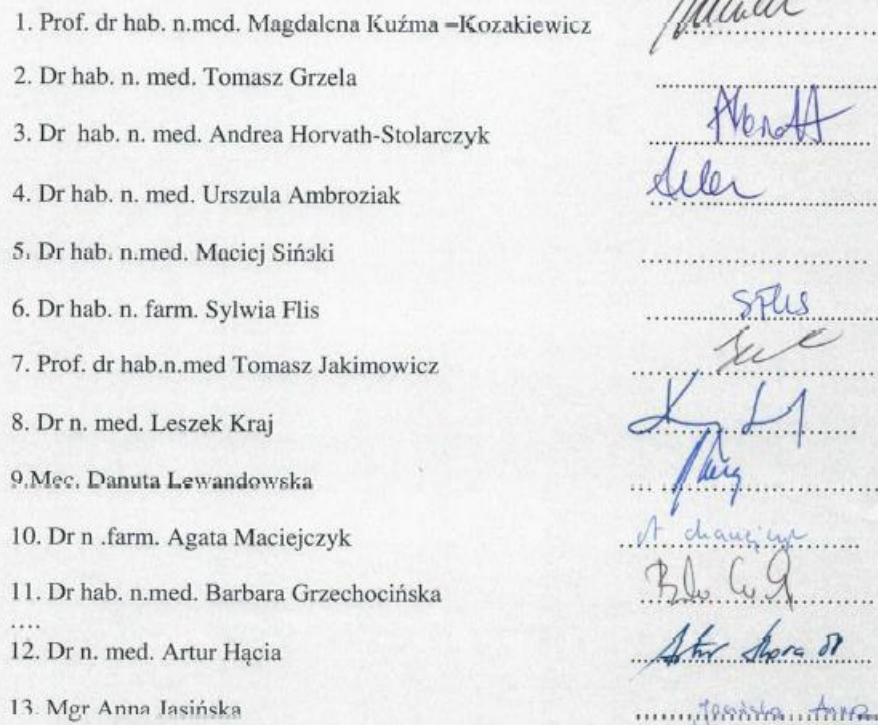 1. Prof. dr hab. n.med. Magdalena Kuźma –Kozakiewicz ....................
2. Dr hab. n. med. Tomasz Grzela ....................
3. Dr hab. n. med. Andrea Horvath-Stolarczyk ....................
4. Dr hab. n. med. Urszula Ambroziak ....................
5. Dr hab. n.med. Maciej Siński ....................
6. Dr hab. n. farm. Sylwia Flis SFlis
7. Prof. dr hab.n.med Tomasz Jakimowicz ....................
8. Dr n. med. Leszek Kraj ....................
9.Mec. Danuta Lewandowska ....................
10. Dr n .farm. Agata Maciejczyk ....................
11. Dr hab. n.med. Barbara Grzechocińska ....................
....
12. Dr n. med. Artur Hącia Artur
13. Mgr Anna Jasińska Jasińska Anna